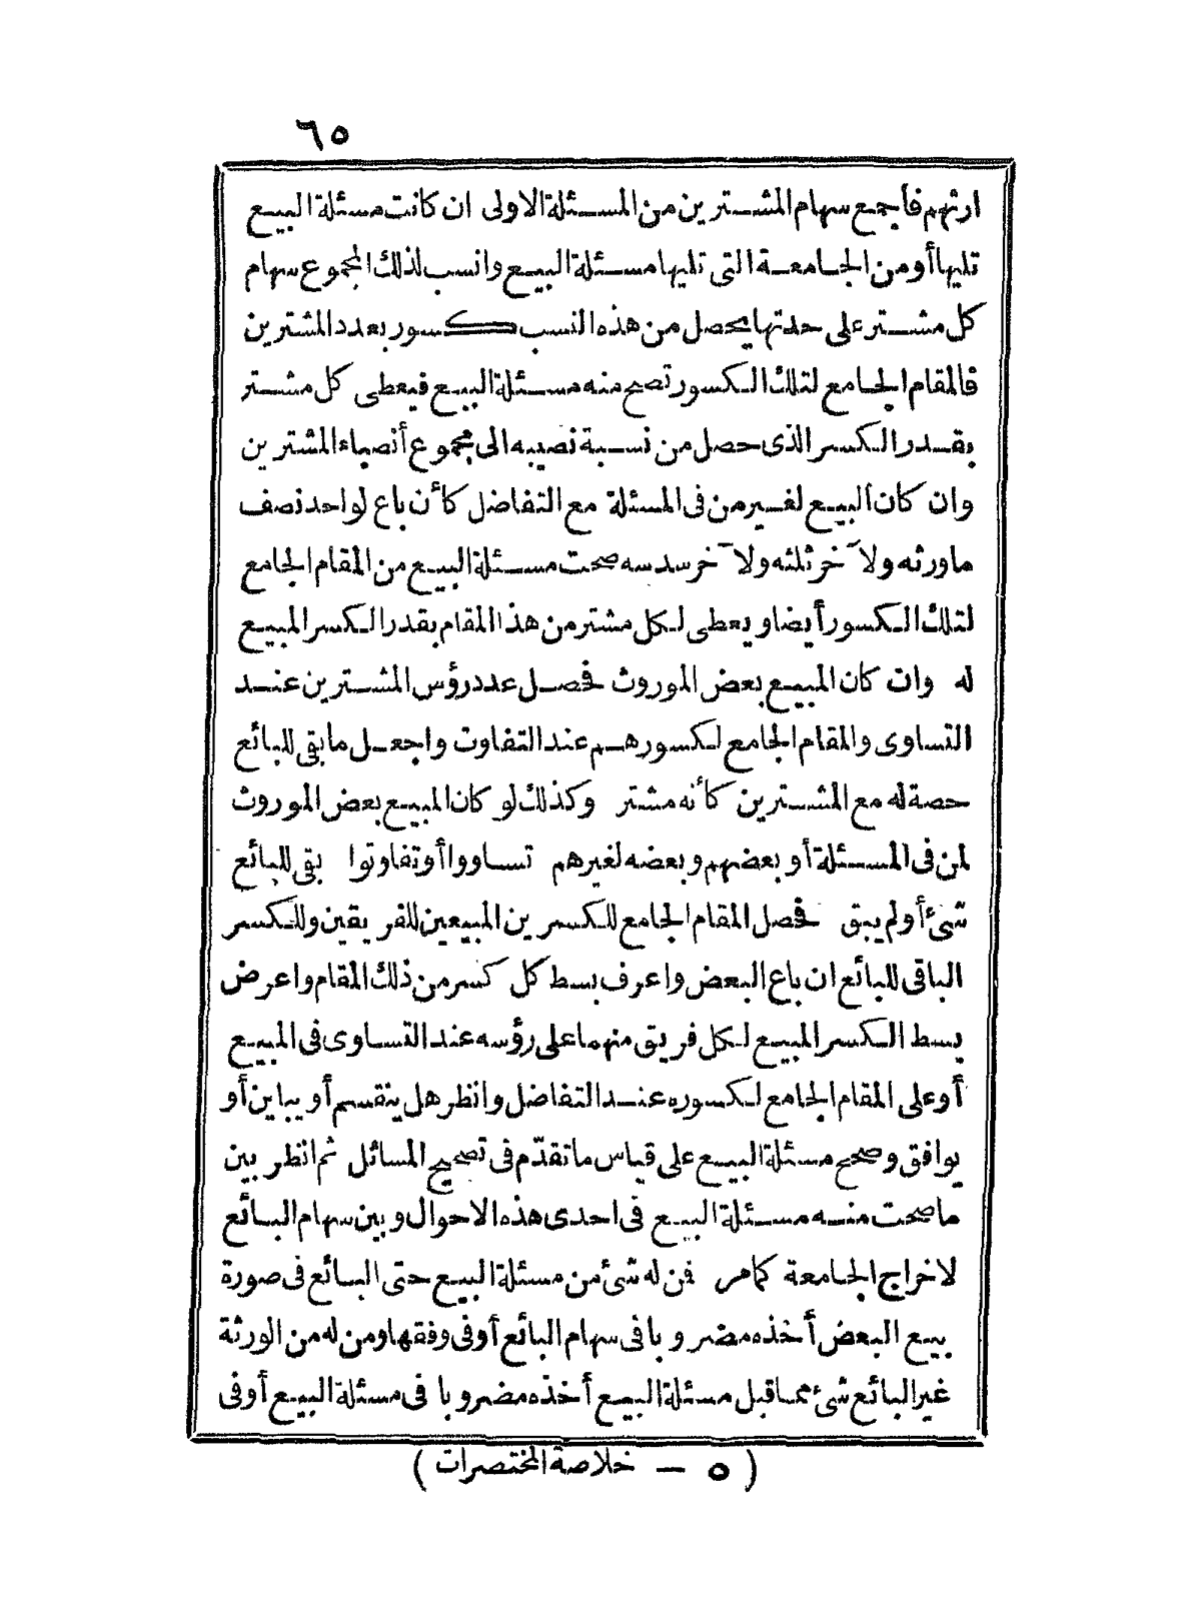 ٦٥
ارثهم فأجمع سهام المشترين من المسئلة الاولى ان كانت مسئلة البيع
تليها أو من الجامعة التى تليها مسئلة البيع وانسب لذلك المجموع سهام
كل مشتر على حدتها يحصل من هذه النسب كسور بعدد المشترين
فالمقام الجامع لتلك الكسور تصح منه مسئلة البيع فيعطى كل مشتر
بقدر الكسر الذى حصل من نسبة نصيبه الى مجموع أنصباء المشترين
وان كان البيع لغير من فى المسئلة مع التفاضل كأن باع لواحد نصف
ماورثه ولآخر ثلثه ولآخر سدسه صحت مسئلة البيع من المقام الجامع
لتلك الكسور أيضا ويعطى لكل مشتر من هذا المقام بقدر الكسر المبيع
له وان كان المبيع بعض الموروث فحصل عدد رؤس المشترين عند
التساوى والمقام الجامع لكسورهم عند التفاوت واجعل مابقى للبائع
حصة له مع المشترين كأنه مشتر وكذلك لو كان المبيع بعض الموروث
لمن فى المسئلة أو بعضهم وبعضه لغيرهم تساووا أو تفاوتوا بقى للبائع
شئ أو لم يبق فحصل المقام الجامع للكسرين المبيعين للفريقين وللكسر
الباقى للبائع ان باع البعض واعرف بسط كل كسر من ذلك المقام واعرض
بسط الكسر المبيع لكل فريق منهما على رؤسه عند التساوى فى المبيع
أو على المقام الجامع لكسوره عند التفاضل وانظر هل ينقسم أو يباين أو
يوافق وصحح مسئلة البيع على قياس ماتقدّم فى تصحيح المسائل ثم انظر بين
ماصحت منه مسئلة البيع فى احدى هذه الاحوال وبين سهام البائع
لاخراج الجامعة كمامر فمن له شئ من مسئلة البيع حتى البائع فى صورة
بيع البعض أخذه مضروبا فى سهام البائع أو فى وفقها ومن له من الورثة
غير البائع شئ مما قبل مسئلة البيع أخذه مضروبا فى مسئلة البيع أو فى
(٥ – خلاصة المختصرات)